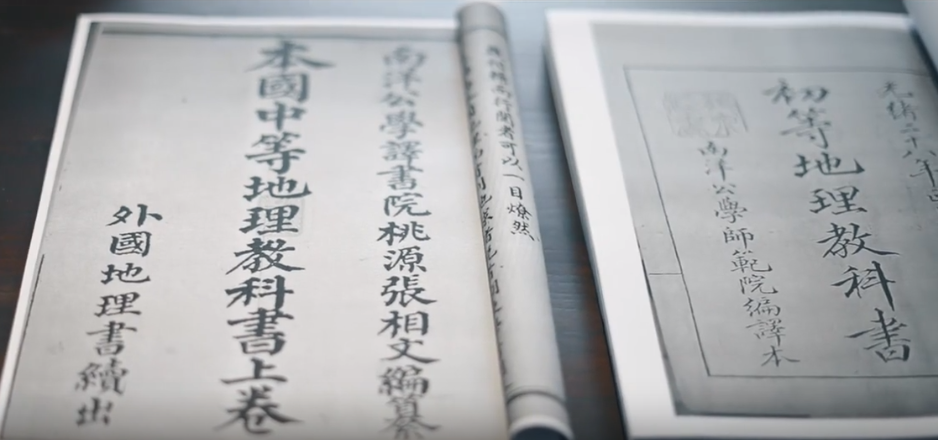 南洋公學譯書院桃源張相文編纂
本國中等地理教科書上卷
外國地理書續出
者可以一目燎然
光緒二十八年
初等地理教科書
南洋公學師範院編譯本